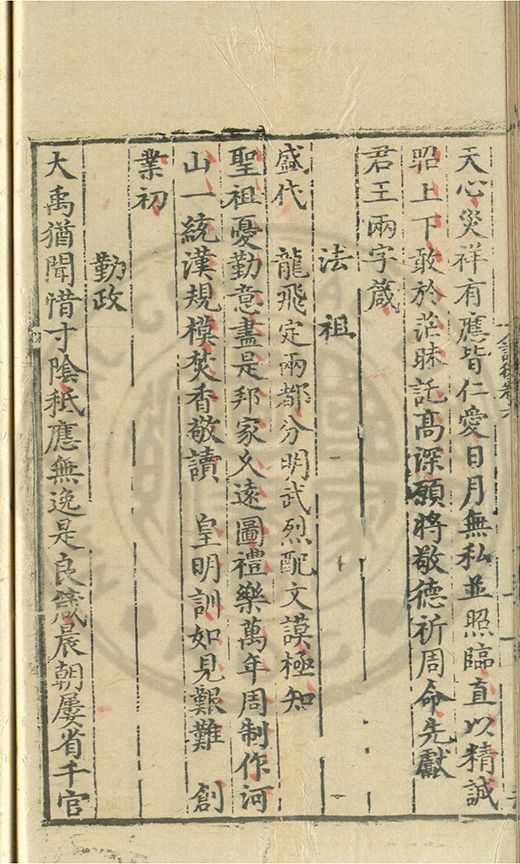 天心災祥有應皆仁愛日月無私並照臨直以精誠
昭上下敢於茫昧託高深願將敬德祈周命先獻
君王兩字箴
法祖
盛代　龍飛定兩都分明武烈配文謨極知
聖祖憂勤意盡是邦家久遠圖禮樂萬年周制作河
山一統漢規模焚香敬讀　皇明訓如見艱難　創
業初
勤政
大禹猶聞惜寸陰秪應無逸是良箴晨朝屢省千官